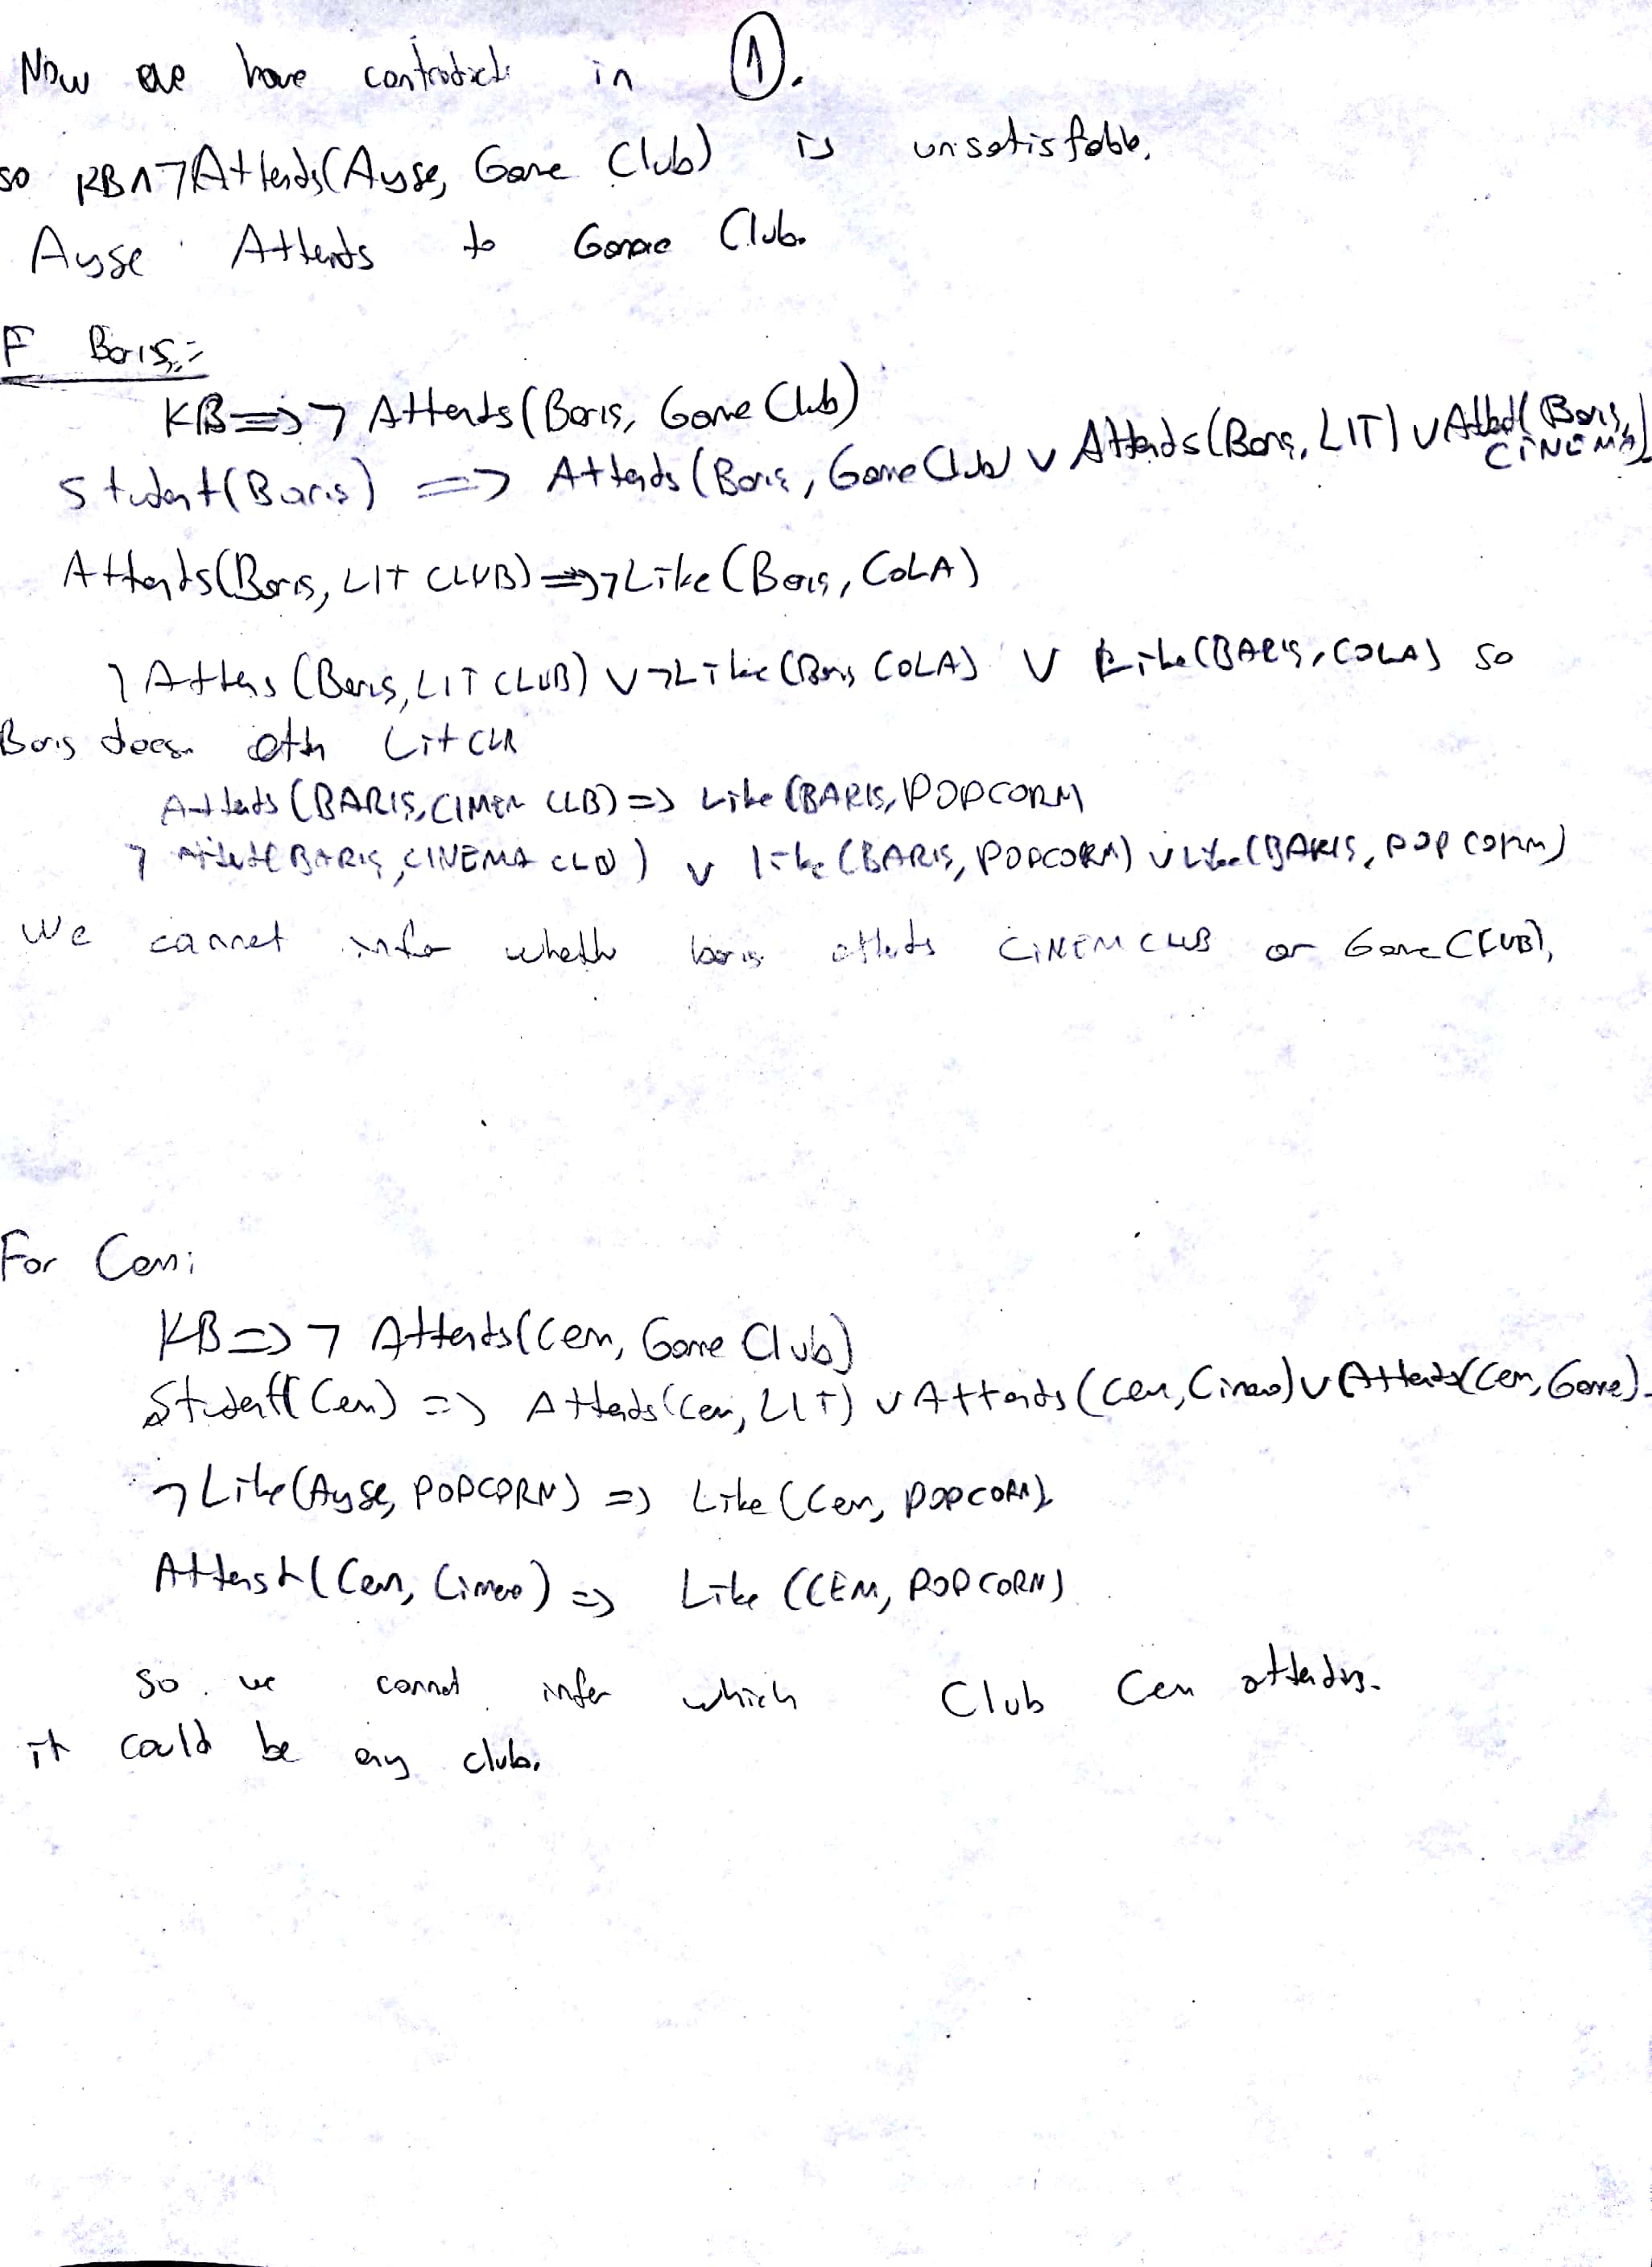 Now we have contradict in ①.
so KB∧¬Attends(Ayse, Game Club) is unsatisfable.
Ayse Attends to Game Club.
F Baris:
KB=>¬ Attends(Baris, Game Club)
Student(Baris) => Attends(Baris, Game Club) ∨ Attends(Baris, LIT) ∨ Attend(Baris, CİNEMA)
Attends(Baris, LIT CLUB)=>¬Like(Baris, COLA)
¬ Attens (Baris, LIT CLUB) ∨ ¬Like (Baris COLA) ∨ Like(BARIS, COLA) so
Baris does Lit
Attends (BARIS, CIMEN CLB) => Like (BARIS, POPCORM
¬ (BARIS, CINEMA CLB) ∨ like (BARIS, POPCORM) ∨ Like(BARIS, POPCORM)
We cannot infer whether baris attends CİNEM CLUB or Game CLUB),
For Cem:
KB=>¬ Attends(Cem, Game Club)
Student(Cem) => Attends(Cem, LIT) ∨ Attends (Cem, Cinema) ∨ Attends(Cem, Game).
¬ Like(Ayse, POPCORN) => Like (Cem, POPCORN).
(Cem, Cinema) => Like (CEM, POPCORN)
so we cannot infer which Club Cem attends.
it could be any club.